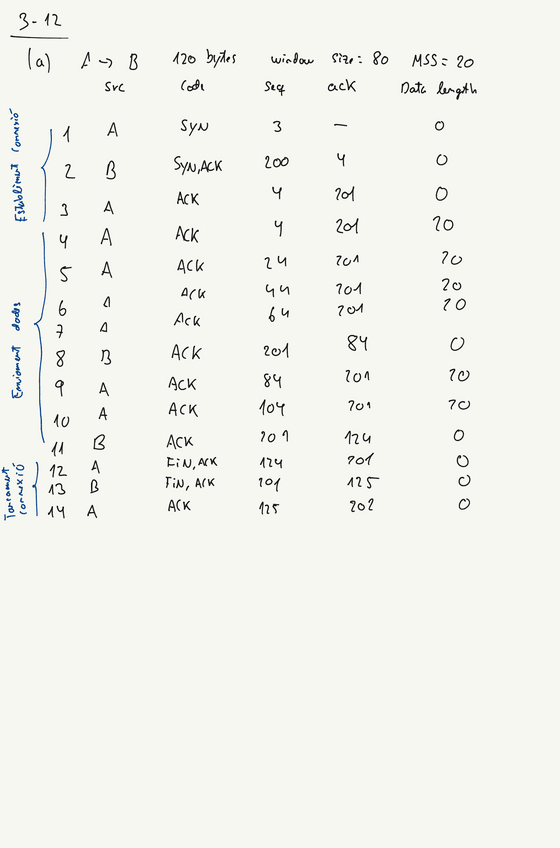 3-12
(a) A → B 120 bytes window size: 80 MSS = 20
Src Code Seq ack Data length
Establiment connexió
1 A SYN 3 — 0
2 B SYN,ACK 200 4 0
3 A ACK 4 201 0
Enviament dades
4 A ACK 4 201 20
5 A ACK 24 201 20
6 A ACK 44 201 20
7 A ACK 64 201 20
8 B ACK 201 84 0
9 A ACK 84 201 20
10 A ACK 104 201 20
11 B ACK 201 124 0
Tancament connexió
12 A FIN, ACK 124 201 0
13 B FIN, ACK 201 125 0
14 A ACK 125 202 0